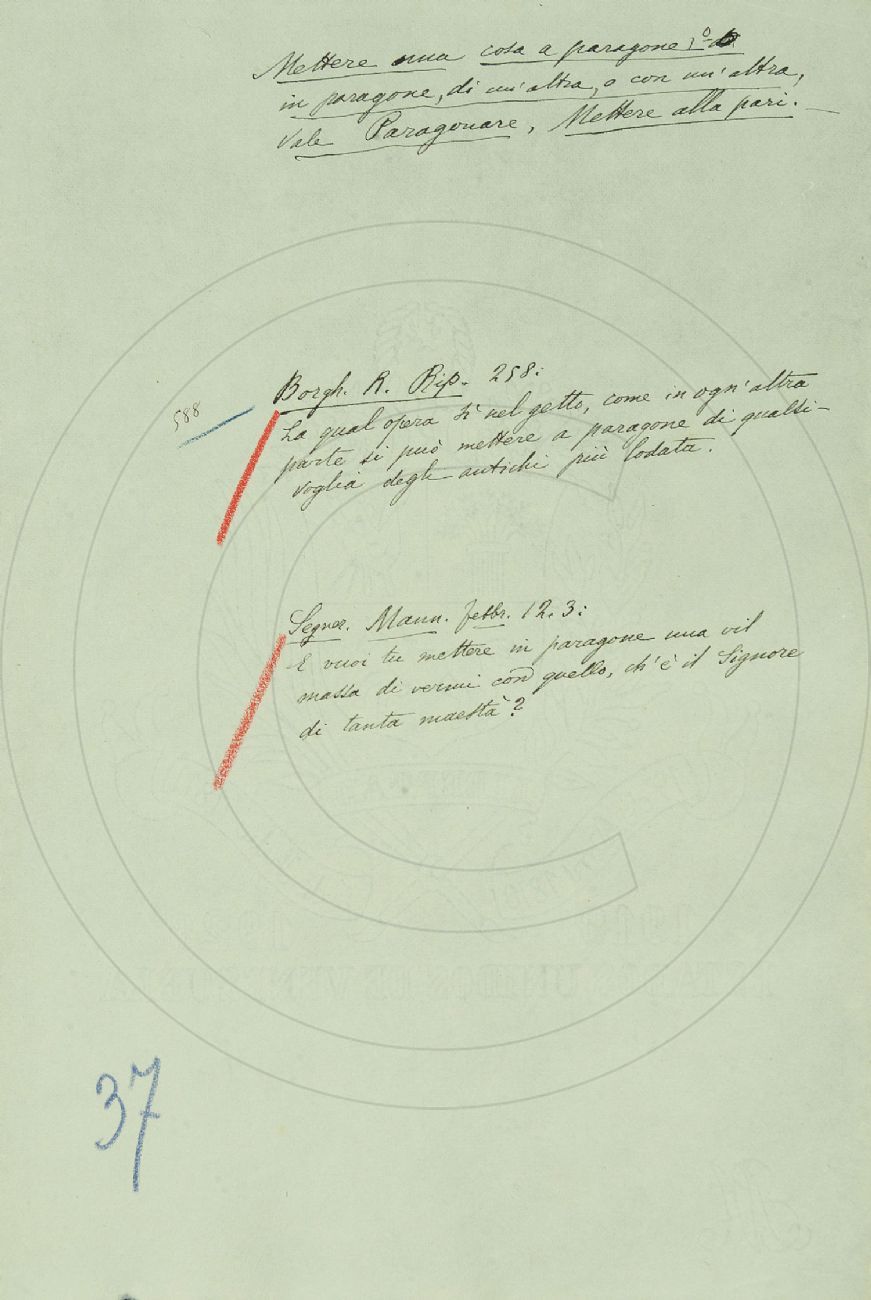 Mettere una cosa a paragone, o
in paragone, di un'altra, o con un'altra,
vale Paragonare, Mettere alla pari. —
588
Borgh. R. Rip. 258:
La qual opera sì nel getto, come in ogn'altra
parte si può mettere a paragone di qualsi-
voglia degli antichi più lodata.
Segner. Mann. febbr. 12. 3:
E vuoi tu mettere in paragone una vil
massa di vermi con quello, ch'è il Signore
di tanta maestà?
37